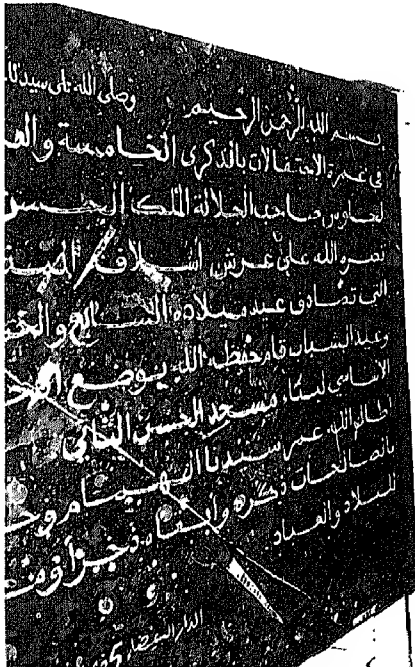 بسم الله الرحمن الرحيم وصلى الله على سيدنا
في غمرة الاحتفالات بالذكرى الخامسة والع
لجلوس صاحب الجلالة الملك الحسن
نصره الله على عرش أسلافه المنع
التي تصادف عيد ميلاده السابع والخم
وعيد الشباب قام حفظه الله بوضع الح
الأساسي لبناء مسجد الحسن الثاني
أطال الله عمر سيدنا الهمام وخ
بالصالحات ذكره وأبقاه ذخرا ومن
للبلاد والعباد
الدار البيضاء